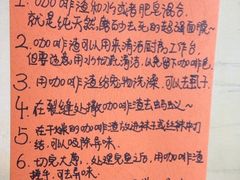 1. 咖啡渣加水或者肥皂混合，
就是纯天然磨砂去死的超逼面膜~
2. 咖啡渣可以用来清洁厨房工作台
但要注意用水彻底清洁，以免留下咖啡色
3. 用咖啡渣给宠物洗澡，可以去虱子
4. 在裂缝处撒咖啡渣去蚂蚁~
5. 在干燥的咖啡渣放进袜子或丝袜中打
结，可以吸除异味
6. 切完大蒜，处理完鱼之后，用咖啡渣
搓手，可去异味.